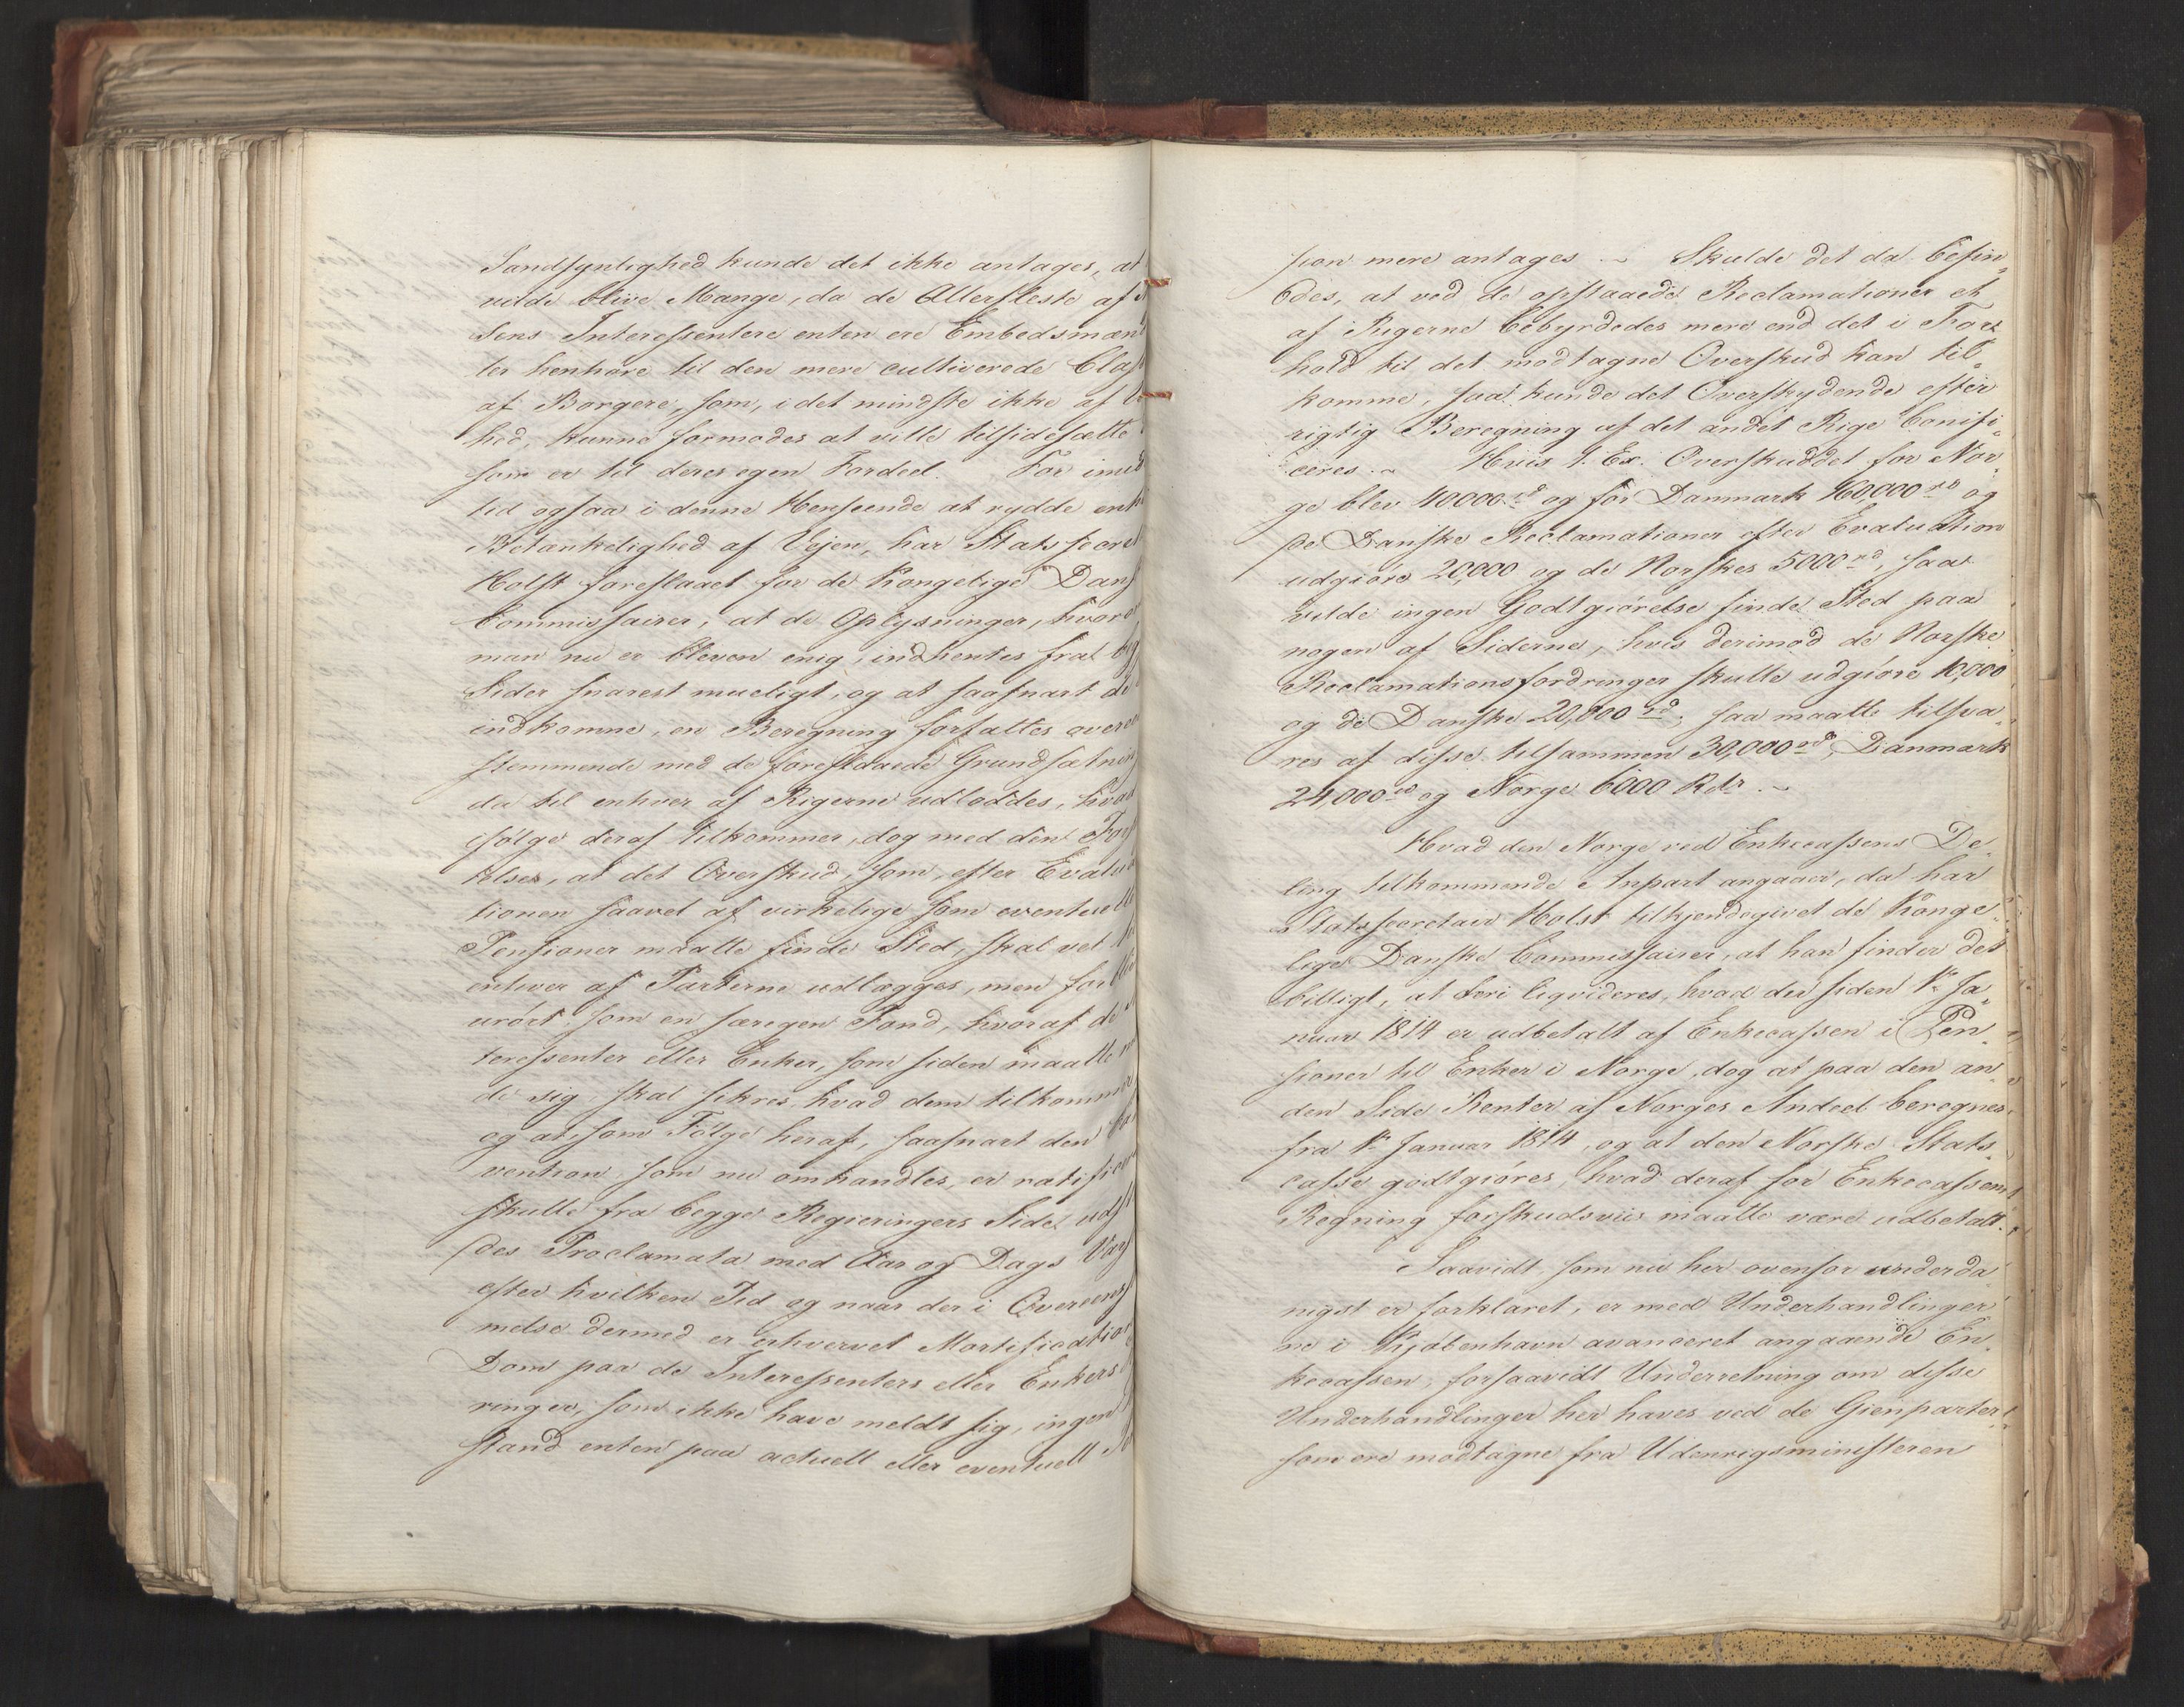 Sandsynlighed kunde det ikke antages, at
vilde blive Mange, da de Allerfleste af
sens Interessentere enten ere Embedsmæn
ler henhøre til den mere cultiverede Class
af Borgere, som, i det mindste ikke af
hed, kunne formodes at ville tilsidesætte
som er til deres egen Fordeel. For imid
tid ogsaa i denne Henseende at rydde enh
Betænkelighed af Vejen, har Statssecret
Holst foreslaaet for de Kongelige Dans
Commissairer, at de Oplysninger, hvor
man nu er bleven enig, indhentes fra beg
Sider snarest mueligt, og at saasnart de
indkomne, en Beregning forfattes overe
stemmende med de foreslaaede Grundsætnin
da til enhver af Rigerne udloddes, hvad
ifølge deraf tilkommer, dog med den For
telse, at det Overskud, som, efter Evalua
tionen saavel af virkelige som eventuelle
Pensioner maatte finde Sted, skal vel
enhver af Parterne udlægges, men forblive
urørt som en særegen Fond, hvoraf de
teressenter eller Enker, som siden maatte
de sig, skal sikres hvad dem tilkommer
og at som Følge heraf, saasnart den Con
vention som nu omhandles, er ratificer
skulle fra begge Regjeringers Side udst
des Proclamata med Aar og Dags Vars
efter hvilken Tid og naar der i Overeens
melse dermed er erhvervet Mortifications
Dom paa de Interessenters eller Enkers
ringer, som ikke have meldt sig, ingen
stand enten paa actuell eller eventuell
sion mere antages. – Skulde det da befin„
des, at ved de opstaaede Reclamationer et
af Rigerne bebyrdedes mere end det i For„
hold til det modtagne Overskud kan til„
komme, saa kunde det Overskydende efter
rigtig Beregning af det andet Rige bonifi„
ceres. – Hvis f. Ex. Overskuddet for Nor„
ge blev 40000 rd og for Danmark 160,000 rd og
de Danske Reclamationer efter Evaluation
udgiøre 20,000 og de Norskes 5000 rd, saa
vilde ingen Godtgiørelse finde Sted paa
nogen af Siderne, hvis derimod de Norske
Reclamationsfordringer skulle udgiøre 10,000
og de Danske 20,000 rd. saa maatte tilsva„
res af disse tilsammen 30,000 rd, Danmark
24000 rd og Norge 6000 Rdr. –
Hvad den Norge ved Enkecassens De„
ling tilkommende Anpart angaaer, da har
Statssecretair Holst tilkjendegivet de Konge„
lige Danske Commissairer, at han finder det
billigt, at heri liqvideres, hvad der siden 1ste Ja„
nuar 1814 er udbetalt af Enkecassen i Pen„
sioner til Enker i Norge, dog at paa den an„
den Side Renter af Norges Andeel beregnes
fra 1ste Januar 1814, og at den Norske Stats„
casse godtgiøres, hvad deraf for Enkecassens
Regning forskudsviis maatte være udbetalt.
Saavidt som nu her ovenfor underda„
nigst er forklaret, er med Underhandlinger„
ne i Kjøbenhavn avanceret angaaende En„
kecassen, forsaavidt Underretning om disse
Underhandlinger her haves ved de Gienparter
som ere modtagne fra Udenrigsministeren